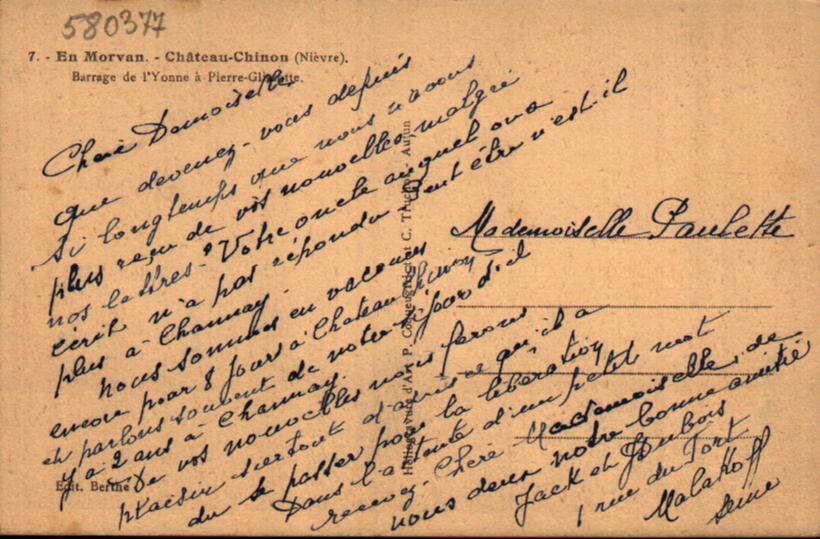 580377
7. - En Morvan. - Château-Chinon (Nièvre).
Barrage de l'Yonne à Pierre-Glissotte.
Chere Demoiselle
que devenez-vous depuis
si longtemps que nous n'avons
plus reçu de vos nouvelles, malgré
nos lettres. Votre oncle auquel on a
écrit n'a pas répondu Peut être n'est-il
plus à Channay.
Nous sommes en vacances
encore pour 8 jours à Chateau-Chinon
et parlons souvent de notre séjour d'il
y a 2 ans à Channay.
De vos nouvelles nous ferons
plaisir surtout d'après ce qu'il a
du se passer pour la libération
Dans l'attente d'un petit mot
recevez Chère Mademoiselle, de
nous deux notre bonne amitié
Jack et Dubois
1 rue du Fort
Malakoff
Seine
Mademoiselle Paulette
Héliogravure d'Art P. et C. Autun
Édit. Berthe